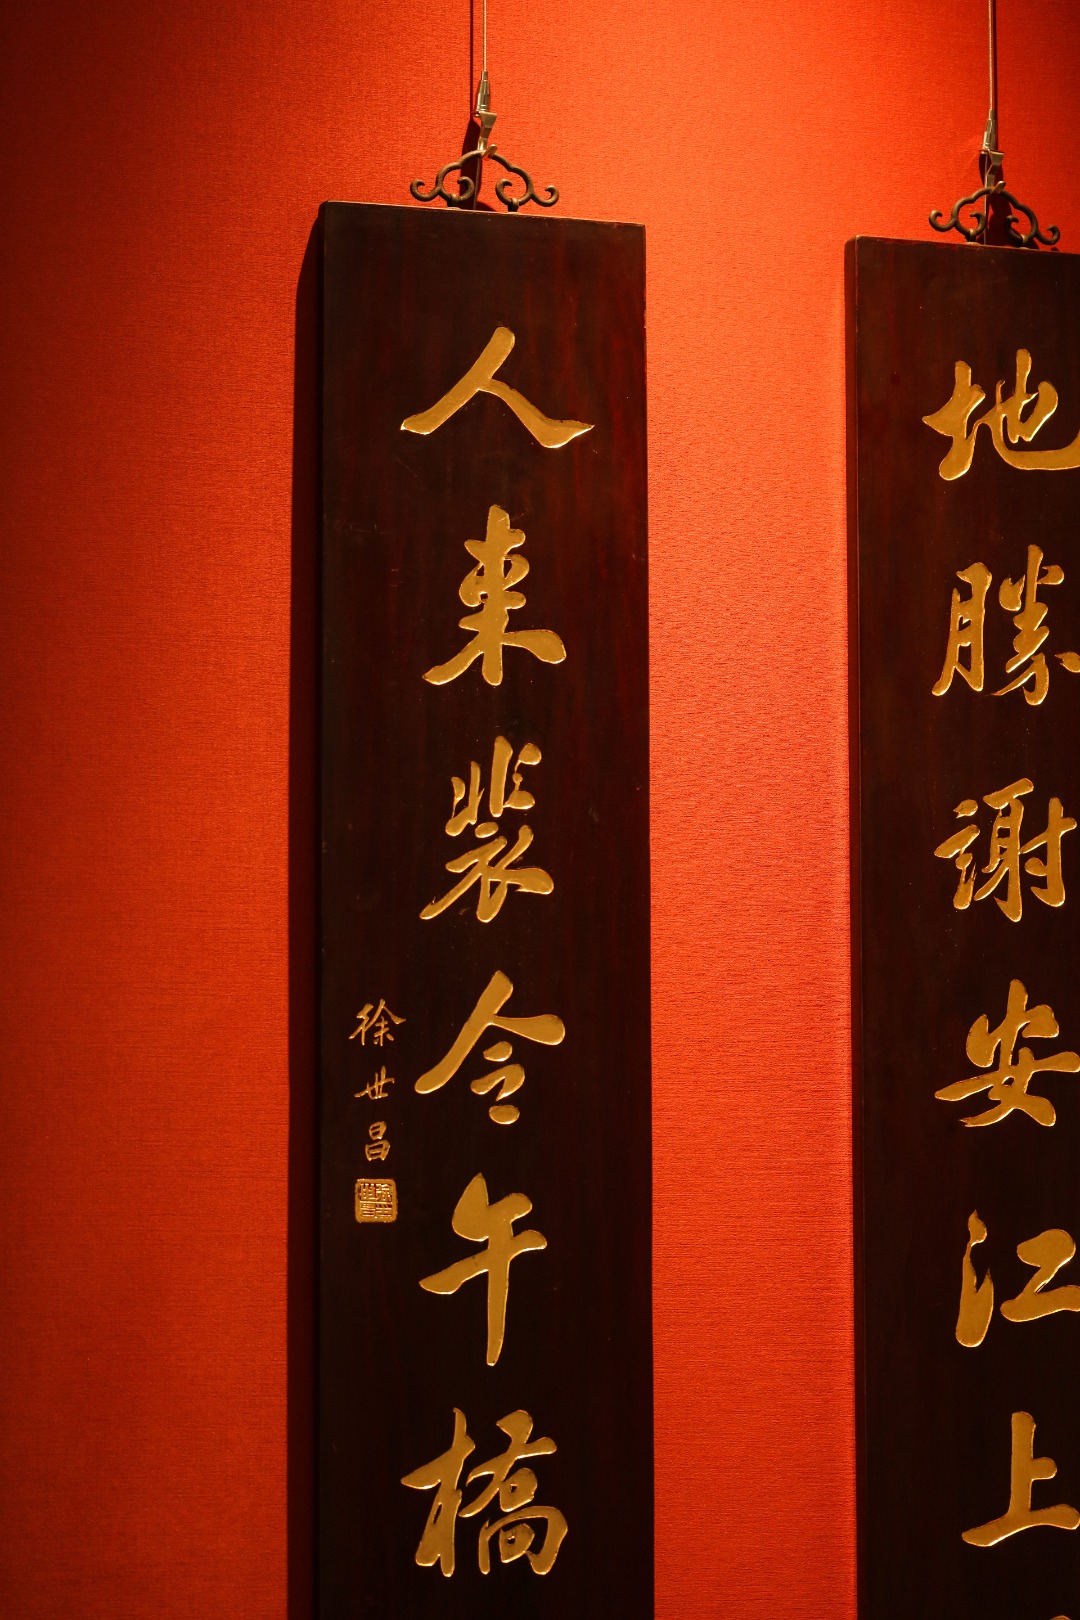 地勝謝安江上
人来裴令午橋
徐世昌